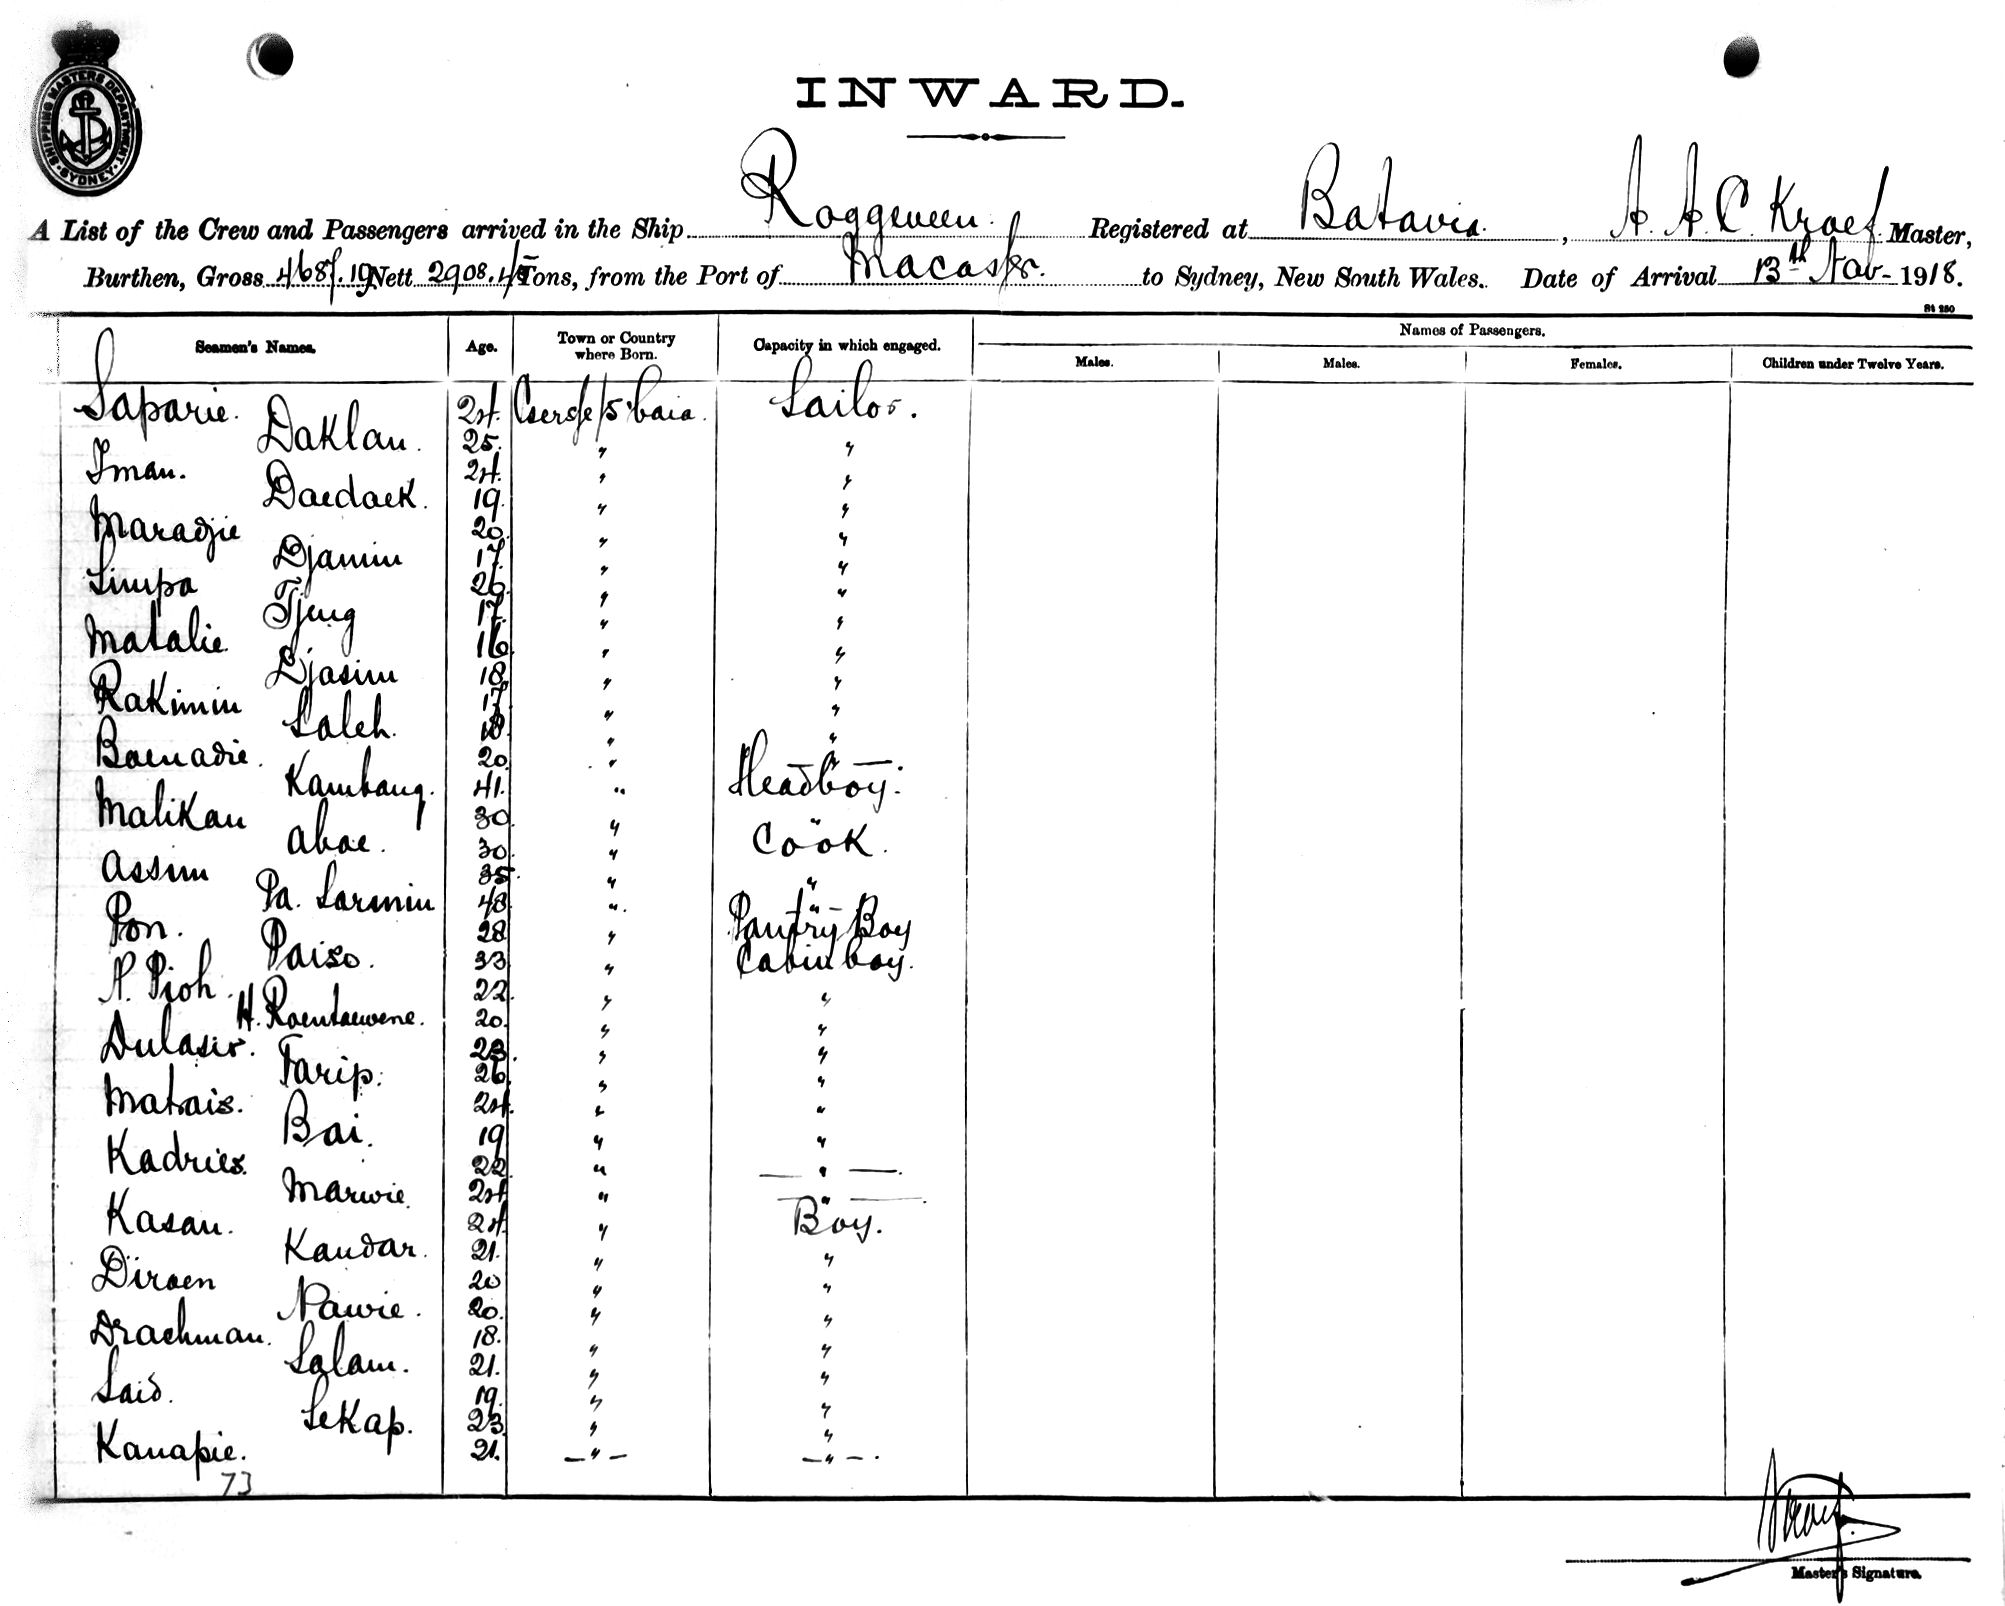 SHIPPING MASTERS DEPARTMENT
SYDNEY
INWARD.
A List of the Crew and Passengers arrived in the Ship Roggeveen. Registered at Batavia. , A. A. C. Kraef. Master,
Burthen, Gross 4687.19 Nett 2908.45 Tons, from the Port of Macasser. to Sydney, New South Wales. Date of Arrival 13th Nov- 1918.
St 280
Seamen's Names. Age. Town or Country where Born. Capacity in which engaged. Names of Passengers.
Males. Males. Females. Children under Twelve Years.
Saparie. 24. S'baia. Sailor.
Daklan. 25. " "
Iman. 24. " "
Daedaek. 19. " "
Maradjie 20. " "
Djamin 17. " "
Simpa 26. " "
Tjeng 17. " "
Matalie 16. " "
Djasim 18. " "
Rakimin 17. " "
Saleh. 18. " "
Boenadie. 20. " "
Kambang. 41. " Headboy.
Malikan 30. " "
Abae. 30. " Cook.
Assim 35. " "
Pa. Sarmin 48. " "
Pon. 28. " Pantry Boy
Paiso. 33. " Cabin boy.
A. Pioh. 22. " "
H. Roentoewene. 20. " "
Dulasir. 23. " "
Tarip. 26. " "
Matrais. 24. " "
Bai. 19. " "
Kadries. 22. " "
Marwie. 24. " "
Kasan. 24. " Boy.
Kandar. 21. " "
Diroen 20 " "
Nawie. 20. " "
Drachman. 18. " "
Salam. 21. " "
Said. 19. " "
Sekap. 23. " "
Kanapie. 21. " "
73
Master's Signature.